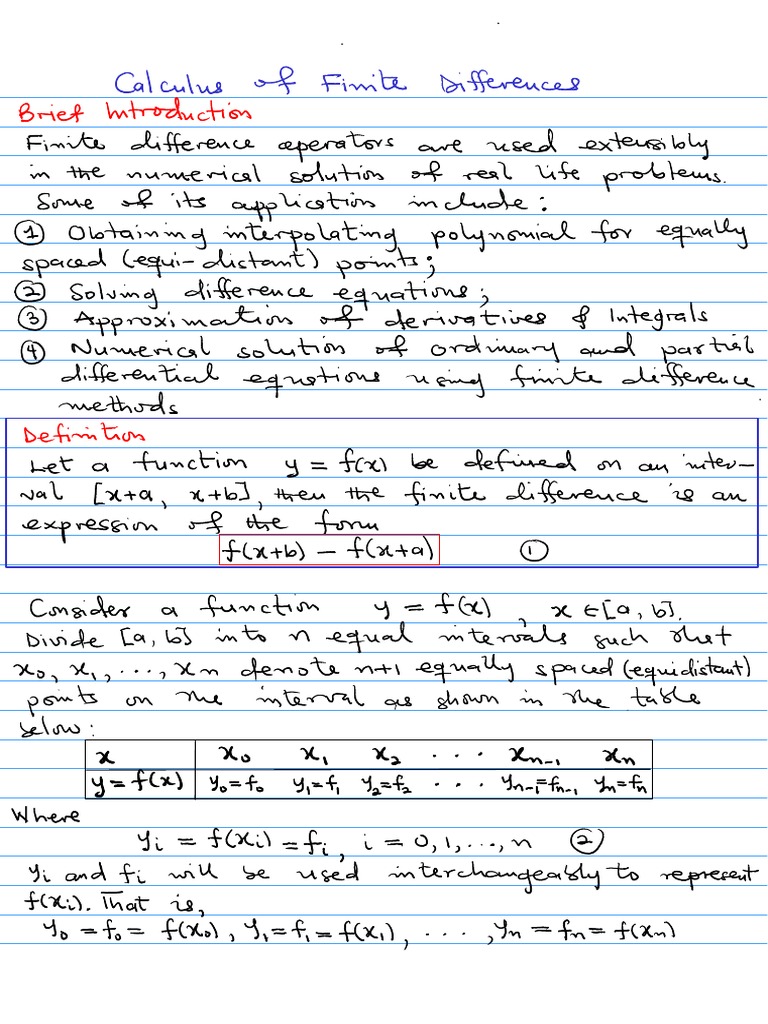 Calculus of Finite Differences
Brief Introduction
Finite difference operators are used extensibly
in the numerical solution of real life problems.
Some of its application include:
① Obtaining interpolating polynomial for equally
spaced (equi-distant) points;
② Solving difference equations;
③ Approximation of derivatives & Integrals
④ Numerical solution of ordinary and partial
differential equations using finite difference
methods
Definition
Let a function y = f(x) be defined on an inter-
val [x+a, x+b], then the finite difference is an
expression of the form
f(x+b) – f(x+a) ①
Consider a function y = f(x), x ∈ [a, b].
Divide [a, b] into n equal intervals such that
x₀, x₁, ..., xn denote n+1 equally spaced (equidistant)
points on the interval as shown in the table
below:
x x₀ x₁ x₂ ... xₙ₋₁ xₙ
y = f(x) y₀=f₀ y₁=f₁ y₂=f₂ ... yₙ₋₁=fₙ₋₁ yₙ=fₙ
Where
yᵢ = f(xᵢ) = fᵢ, i = 0, 1, ..., n ②
yᵢ and fᵢ will be used interchangeably to represent
f(xᵢ). That is,
y₀ = f₀ = f(x₀), y₁ = f₁ = f(x₁), ..., yₙ = fₙ = f(xₙ)